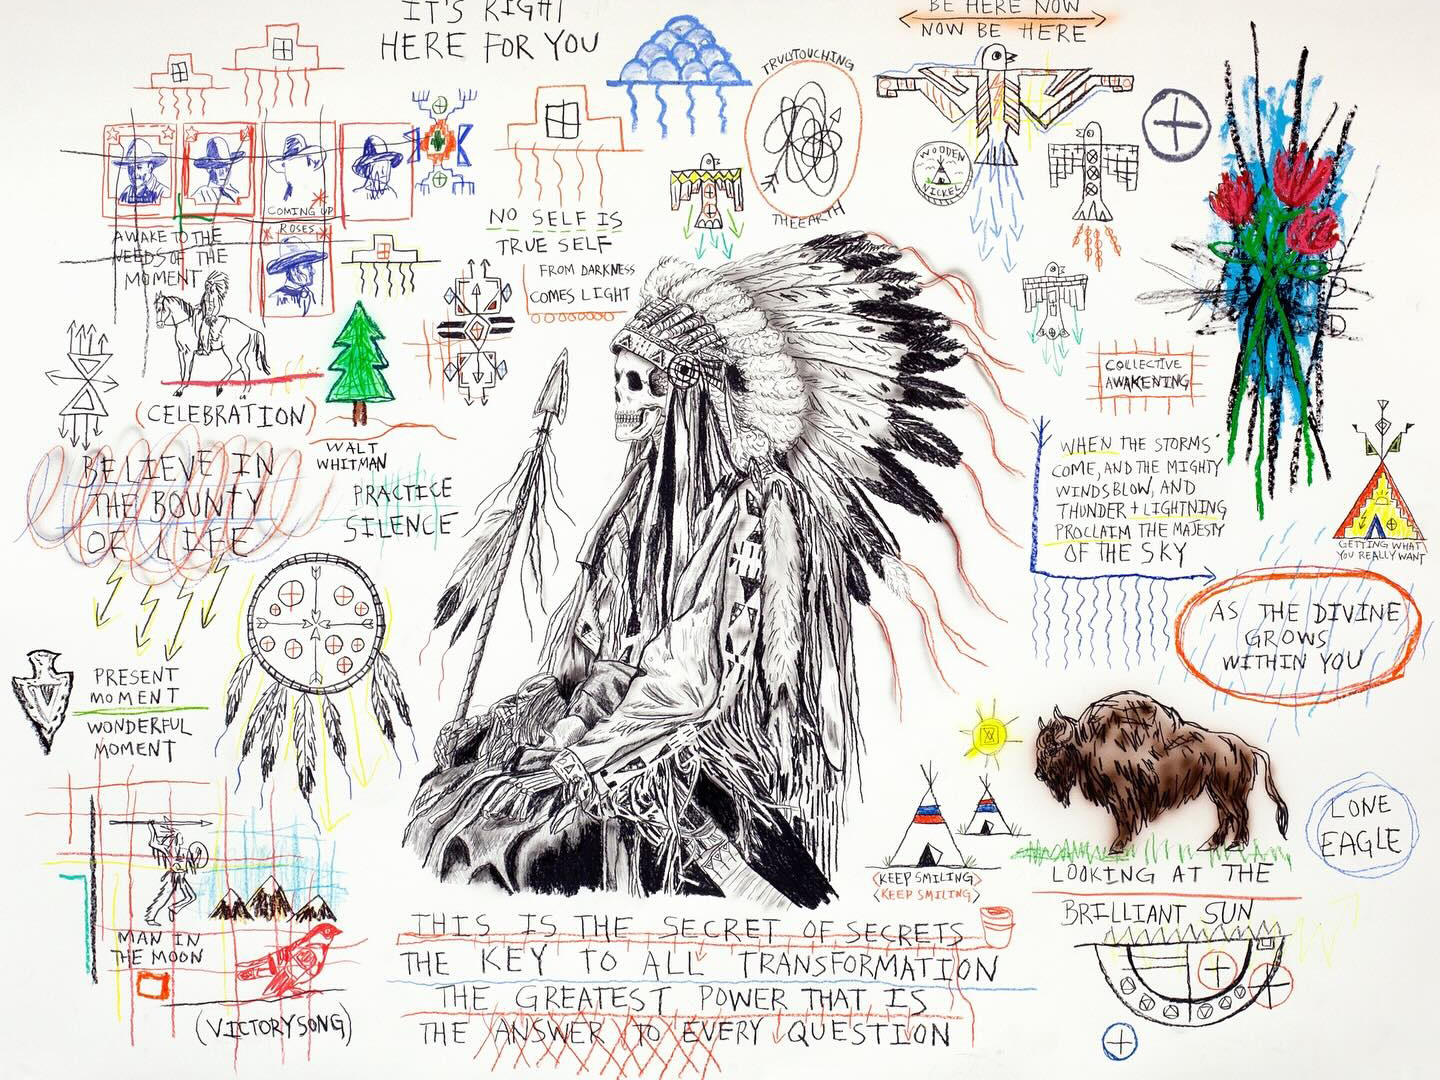 IT'S RIGHT
HERE FOR YOU
BE HERE NOW
NOW BE HERE
TRULY TOUCHING
THE EARTH
WOODEN
NICKEL
COMING UP
ROSES
AWAKE TO THE
NEEDS OF THE
MOMENT
NO SELF IS
TRUE SELF
FROM DARKNESS
COMES LIGHT
COLLECTIVE
AWAKENING
(CELEBRATION)
WALT
WHITMAN
BELIEVE IN
THE BOUNTY
OF LIFE
PRACTICE
SILENCE
WHEN THE STORMS
COME, AND THE MIGHTY
WINDS BLOW, AND
THUNDER + LIGHTNING
PROCLAIM THE MAJESTY
OF THE SKY
GETTING WHAT
YOU REALLY WANT
AS THE DIVINE
GROWS
WITHIN YOU
PRESENT
MOMENT
WONDERFUL
MOMENT
LONE
EAGLE
KEEP SMILING
KEEP SMILING
LOOKING AT THE
BRILLIANT SUN
MAN IN
THE MOON
(VICTORY SONG)
THIS IS THE SECRET OF SECRETS
THE KEY TO ALL TRANSFORMATION
THE GREATEST POWER THAT IS
THE ANSWER TO EVERY QUESTION